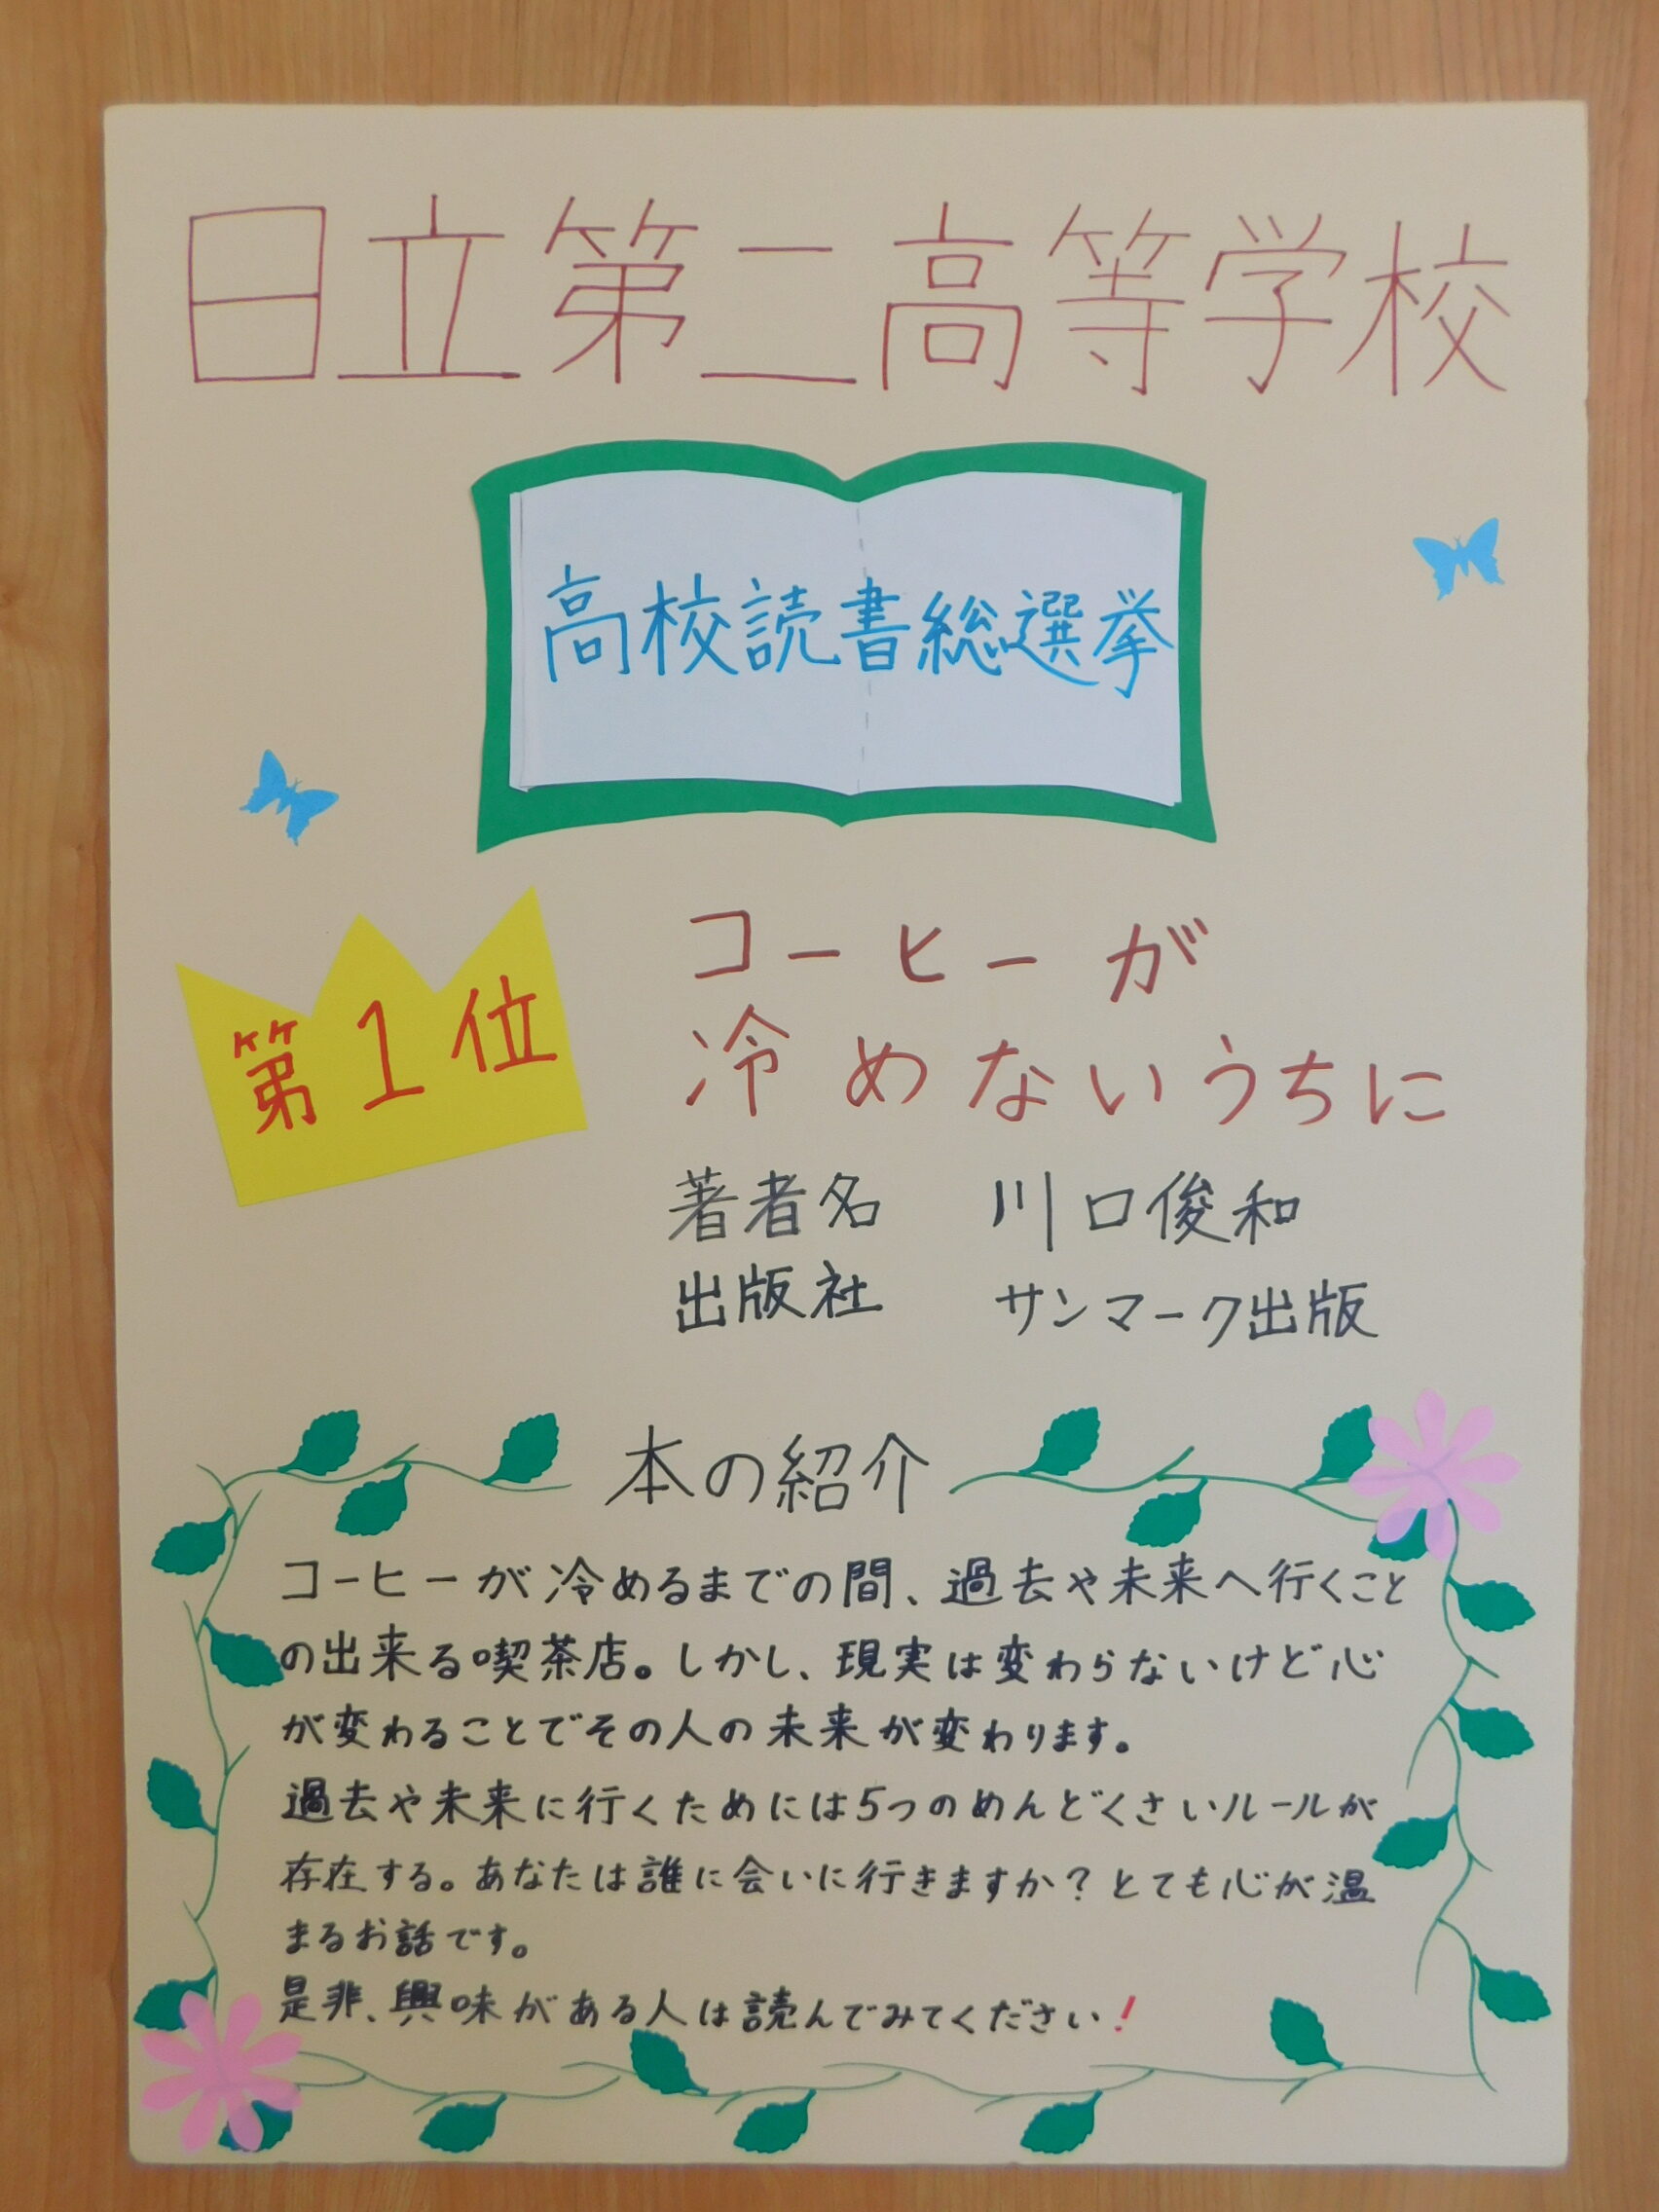 日立第二高等学校
高校読書総選挙
第1位
コーヒーが
冷めないうちに
著者名 川口俊和
出版社 サンマーク出版
本の紹介
コーヒーが冷めるまでの間、過去や未来へ行くこと
の出来る喫茶店。しかし、現実は変わらないけど心
が変わることでその人の未来が変わります。
過去や未来に行くためには5つのめんどくさいルールが
存在する。あなたは誰に会いに行きますか？とても心が温
まるお話です。
是非、興味がある人は読んでみてください！